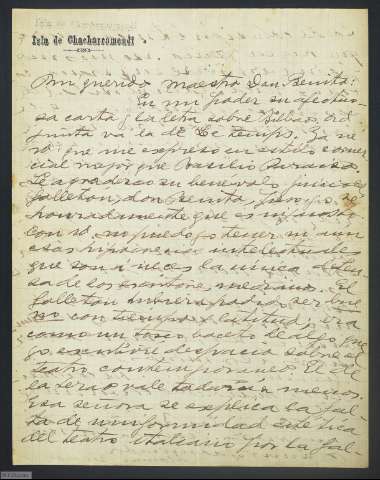 Isla de Chacharramendi
Mi querido maestro Don Benito:
En mi poder su afectuo-
sa carta y la letra sobre Bilbao. Ad-
junta va la de Le Temps. Ya ve-
rá que me expreso en estilo comer-
cial mejor que Basilio Paraíso.
Le agradezco su benévolo juicio del
folleton, don Benito, pero yo se
honradamente que es injusto
con él. No puedo yo tener ni aun
esas hipocresías intelectuales
que son á veces la única defen-
sa de los escritores medianos. El
folleton hubiera podido ser bue-
no con tiempo y latitud; era
como un tosco boceto de algo que
yo escribiré despacio sobre el
teatro contemporáneo. El de
la vale todavía menos.
Esa señora se explica la fal-
ta de uniformidad estética
del teatro italiano por la fal-